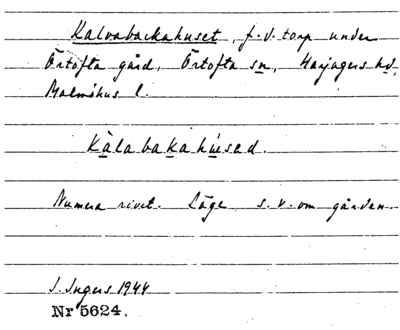 Kalvabackahuset, f.d. torp under
Örtofta gård, Örtofta sn, Harjagers hd,
Malmöhus l.
Kàlabakahúsed.
Numera rivet. Läge s.v. om gården.
I. Ingers 1944
Nr 5624.